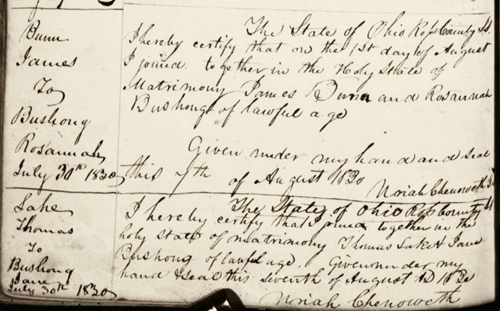 Bunn
James
To
Bushong
Rosannah
July 30th 1830
The State of Ohio Ross County Ss.
I hereby certify that on the 1st day of August
I joined together in the Holy State of
Matrimony James Bunn and Rosannah
Bushong of lawful age
Given under my hand and seal
this 7th of August 1830
Noriah Chenoweth
Lake
Thomas
To
Bushong
Jane
July 30th 1830
The State of Ohio Ross County Ss
I hereby certify that joined together in the
holy state of matrimony Thomas Lake & Jane
Bushong of lawful age. Given under my
hand & seal this seventh of August AD 1830
Noriah Chenoweth